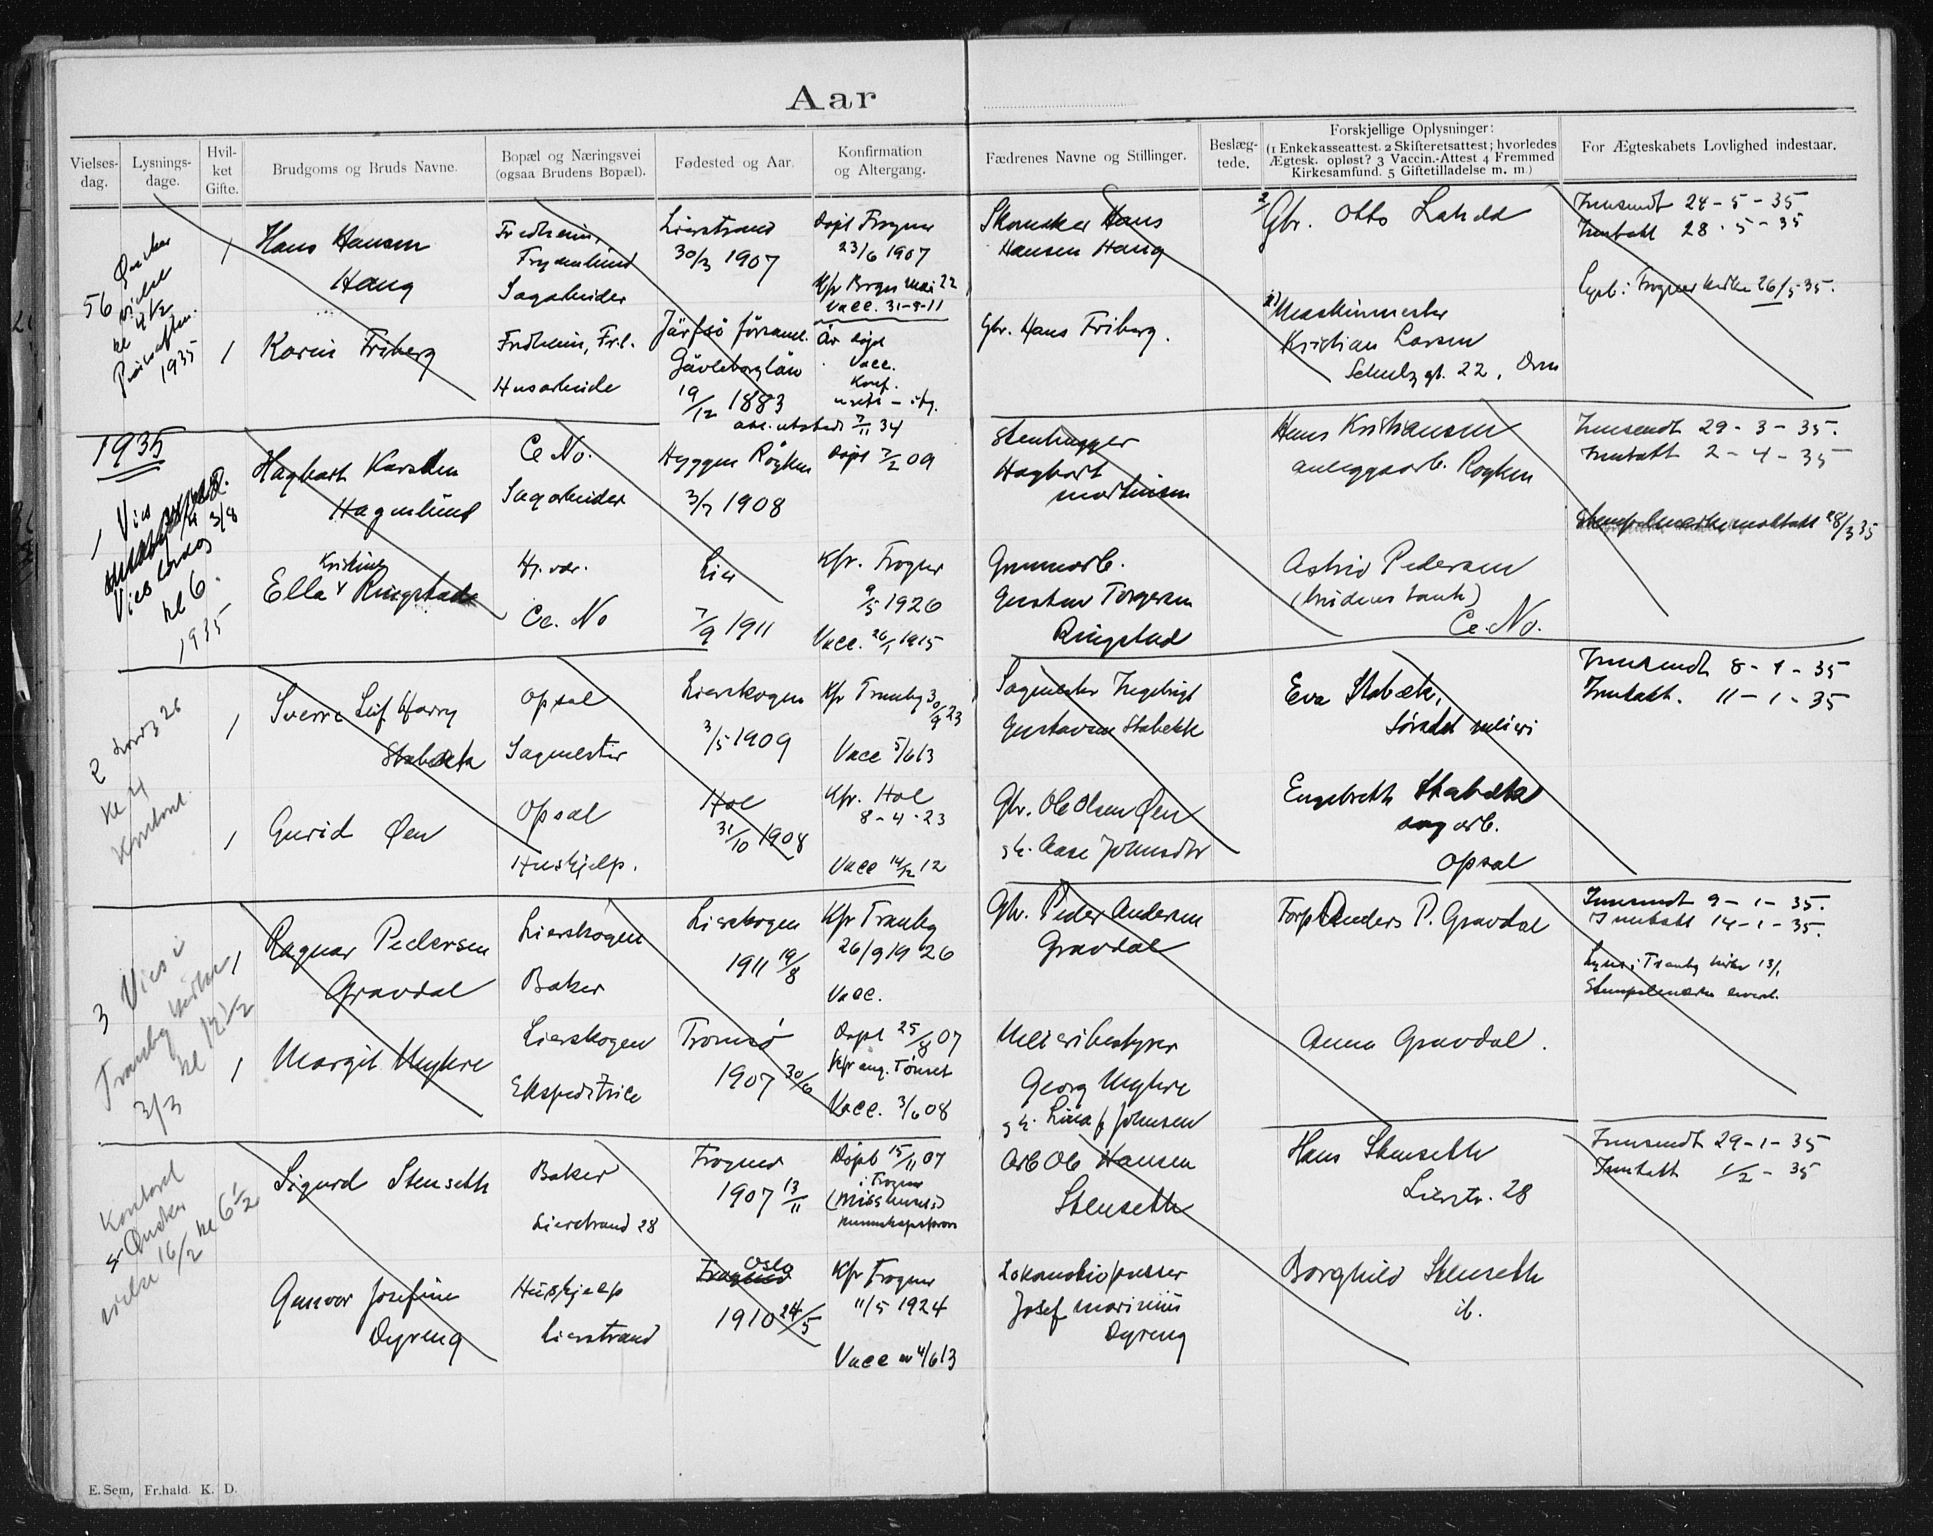 Aar
Vielses-dag.
Lysnings-dage.
Hvil-ket Gifte.
Brudgoms og Bruds Navne.
Bopæl og Næringsvei (ogsaa Brudens Bopæl).
Fødested og Aar.
Konfirmation og Altergang.
Fædrenes Navne og Stillinger.
Beslæg-tede.
Forskjellige Oplysninger:
(1 Enkekasseattest. 2 Skifteretsattest; hvorledes
Ægtesk. opløst? 3 Vaccin.-Attest 4 Fremmed
Kirkesamfund. 5 Giftetilladelse m. m.)
For Ægteskabets Lovlighed indestaar.
56 Ønsker vielse kl 4½
1935
1
Hans Hansen
Haug
Fredheim,
Frydenlund
Sagarbeider
Lierstrand
30/3 1907
Døpt Frogner
23/6 1907
Kfr Borgen Mai 22
Vacc. 31-9-11
Skomaker Hans
Hansen Haug
Gbr. Otto
Innsendt 24-5-35
Inntatt 28-5-35
Lyst i Frogner kirke 26/5 35.
1
Karin Friberg
Fredheim, Frl.
Husarbeide
Järfsö församl.
Gävleborg län
19/12 1883
Är döpt
Vacc.
Konf.
utstedt 7/11 34
Gbr. Hans Friberg.
Maskinmester
Kristian Larsen
Schulz gt. 22, Drm
1935
1 Vies
Vies lørdag 3/8
kl 6.
1935
Hagbart Karsten
Hagenlund
Ce No.
Sagarbeider
Hyggen Røyken
3/7 1908
Døpt 7/2 09
Stenhugger
Hagbart
Martinsen
Hans Kristiansen
anleggsarb. Røyken
Innsendt 29-3-35.
Inntatt 2-4-35
Stempelmerke mottatt 28/3 35
Kristine
Ella Ringstad
Hj. vær.
Ce. No
Lier
7/9 1911
Kfr. Frogner
9/5 1926
Vacc. 26/1 1915
Grunnarb.
Gustav Torgersen
Ringstad
Astrid Pedersen
(brudens tante)
Ce. No.
2
26
kl 4
Kontoret
1
Sverre Leif Harry
Stabekk
Opsal
Sagmester
Lierskogen
3/5 1909
Kfr Tranby 30/9 23
Vacc 5/6 13
Sagmester Ingebrigt
Gustavsen Stabekk
Eva Stabæk,
Sørsdal meieri
Innsendt 8-1-35
Inntatt. 11-1-35
1
Gurid Øen
Opsal
Hushjelp.
Hol
31/10 1908
Kfr. Hol
8-4-23
Vacc 14/12 12
Gbr. Ole Olsen Øen
g.h. Aase Johnsdtr
Engebreth Stabæk
sagarb.
Opsal
3 Vies i
Tranby kirke
kl 12½
3/3
1
Ragnar Pedersen
Gravdal
Lierskogen
Baker
Lierskogen
1911 19/8
Kfr Tranby
26/9 1926
Vacc.
Gbr. Peder Andersen
Gravdal
Forp Anders P. Gravdal
Innsendt 9-1-35.
Inntatt 14-1-35.
Lyst i Tranby kirke 13/1
Stempelmerke
1
Margit Myhre
Lierskogen
Ekspeditrice
Tromsø
1907 30/6
Døpt 25/8 07
Kfr aug. Tønset
Vacc. 3/6 08
Meieribestyrer
Georg Myhre
g.h. Lina f Johnsen
Anna Gravdal.
Kontoret
4 Ønsker
vielse 16/2 kl 6½
Sigurd Stenseth
Baker
Lierstrand 28
Frogner
1907 13/11
Døpt 15/11 07
i Frogner
Arb Ole Hansen
Stenseth
Hans Stenseth
Lierstr. 28
Innsendt 29-1-35
Inntatt 1/2-35
Gunvor Josefine
Dyreng
Hushjelp
Lierstrand
Oslo
1910 24/5
Kfr Frogner
11/5 1924
Vacc 4/6 13
Lokomotivpusser
Josef Marinius
Dyreng
Borghild Stenseth
ib.
E. Sem, Fr.hald K. D.